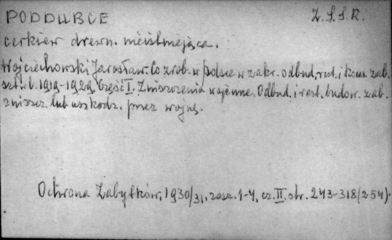 PODDUBCE Z.S.S.R.
cerkiew drewn. nieistniejąca.
Wojciechowski Jarosław. Co zrob. w Polsce w zakr. odbud., rest. i kons. zab.
szt. l. 1919-1929. Część I. Zniszczenia wojenne. Odbud. i rest. budow. zab.
zniszcz. lub uszkodz. przez wojnę.
Ochrona Zabytków, 1930/31, zesz. 1-4, cz. II, str. 243-318 (254).